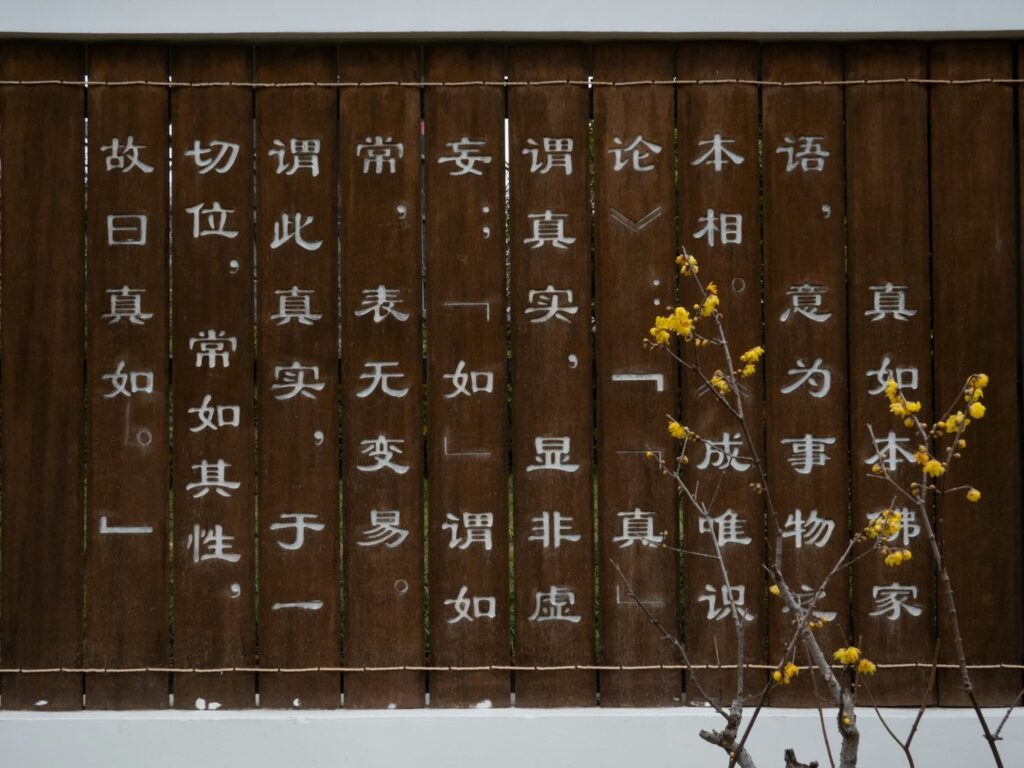 真如本佛家
语，意为事物之
本相。《成唯识
论》：「「真」
谓真实，显非虚
妄；「如」谓如
常，表无变易。
谓此真实，于一
切位，常如其性，
故曰真如。」